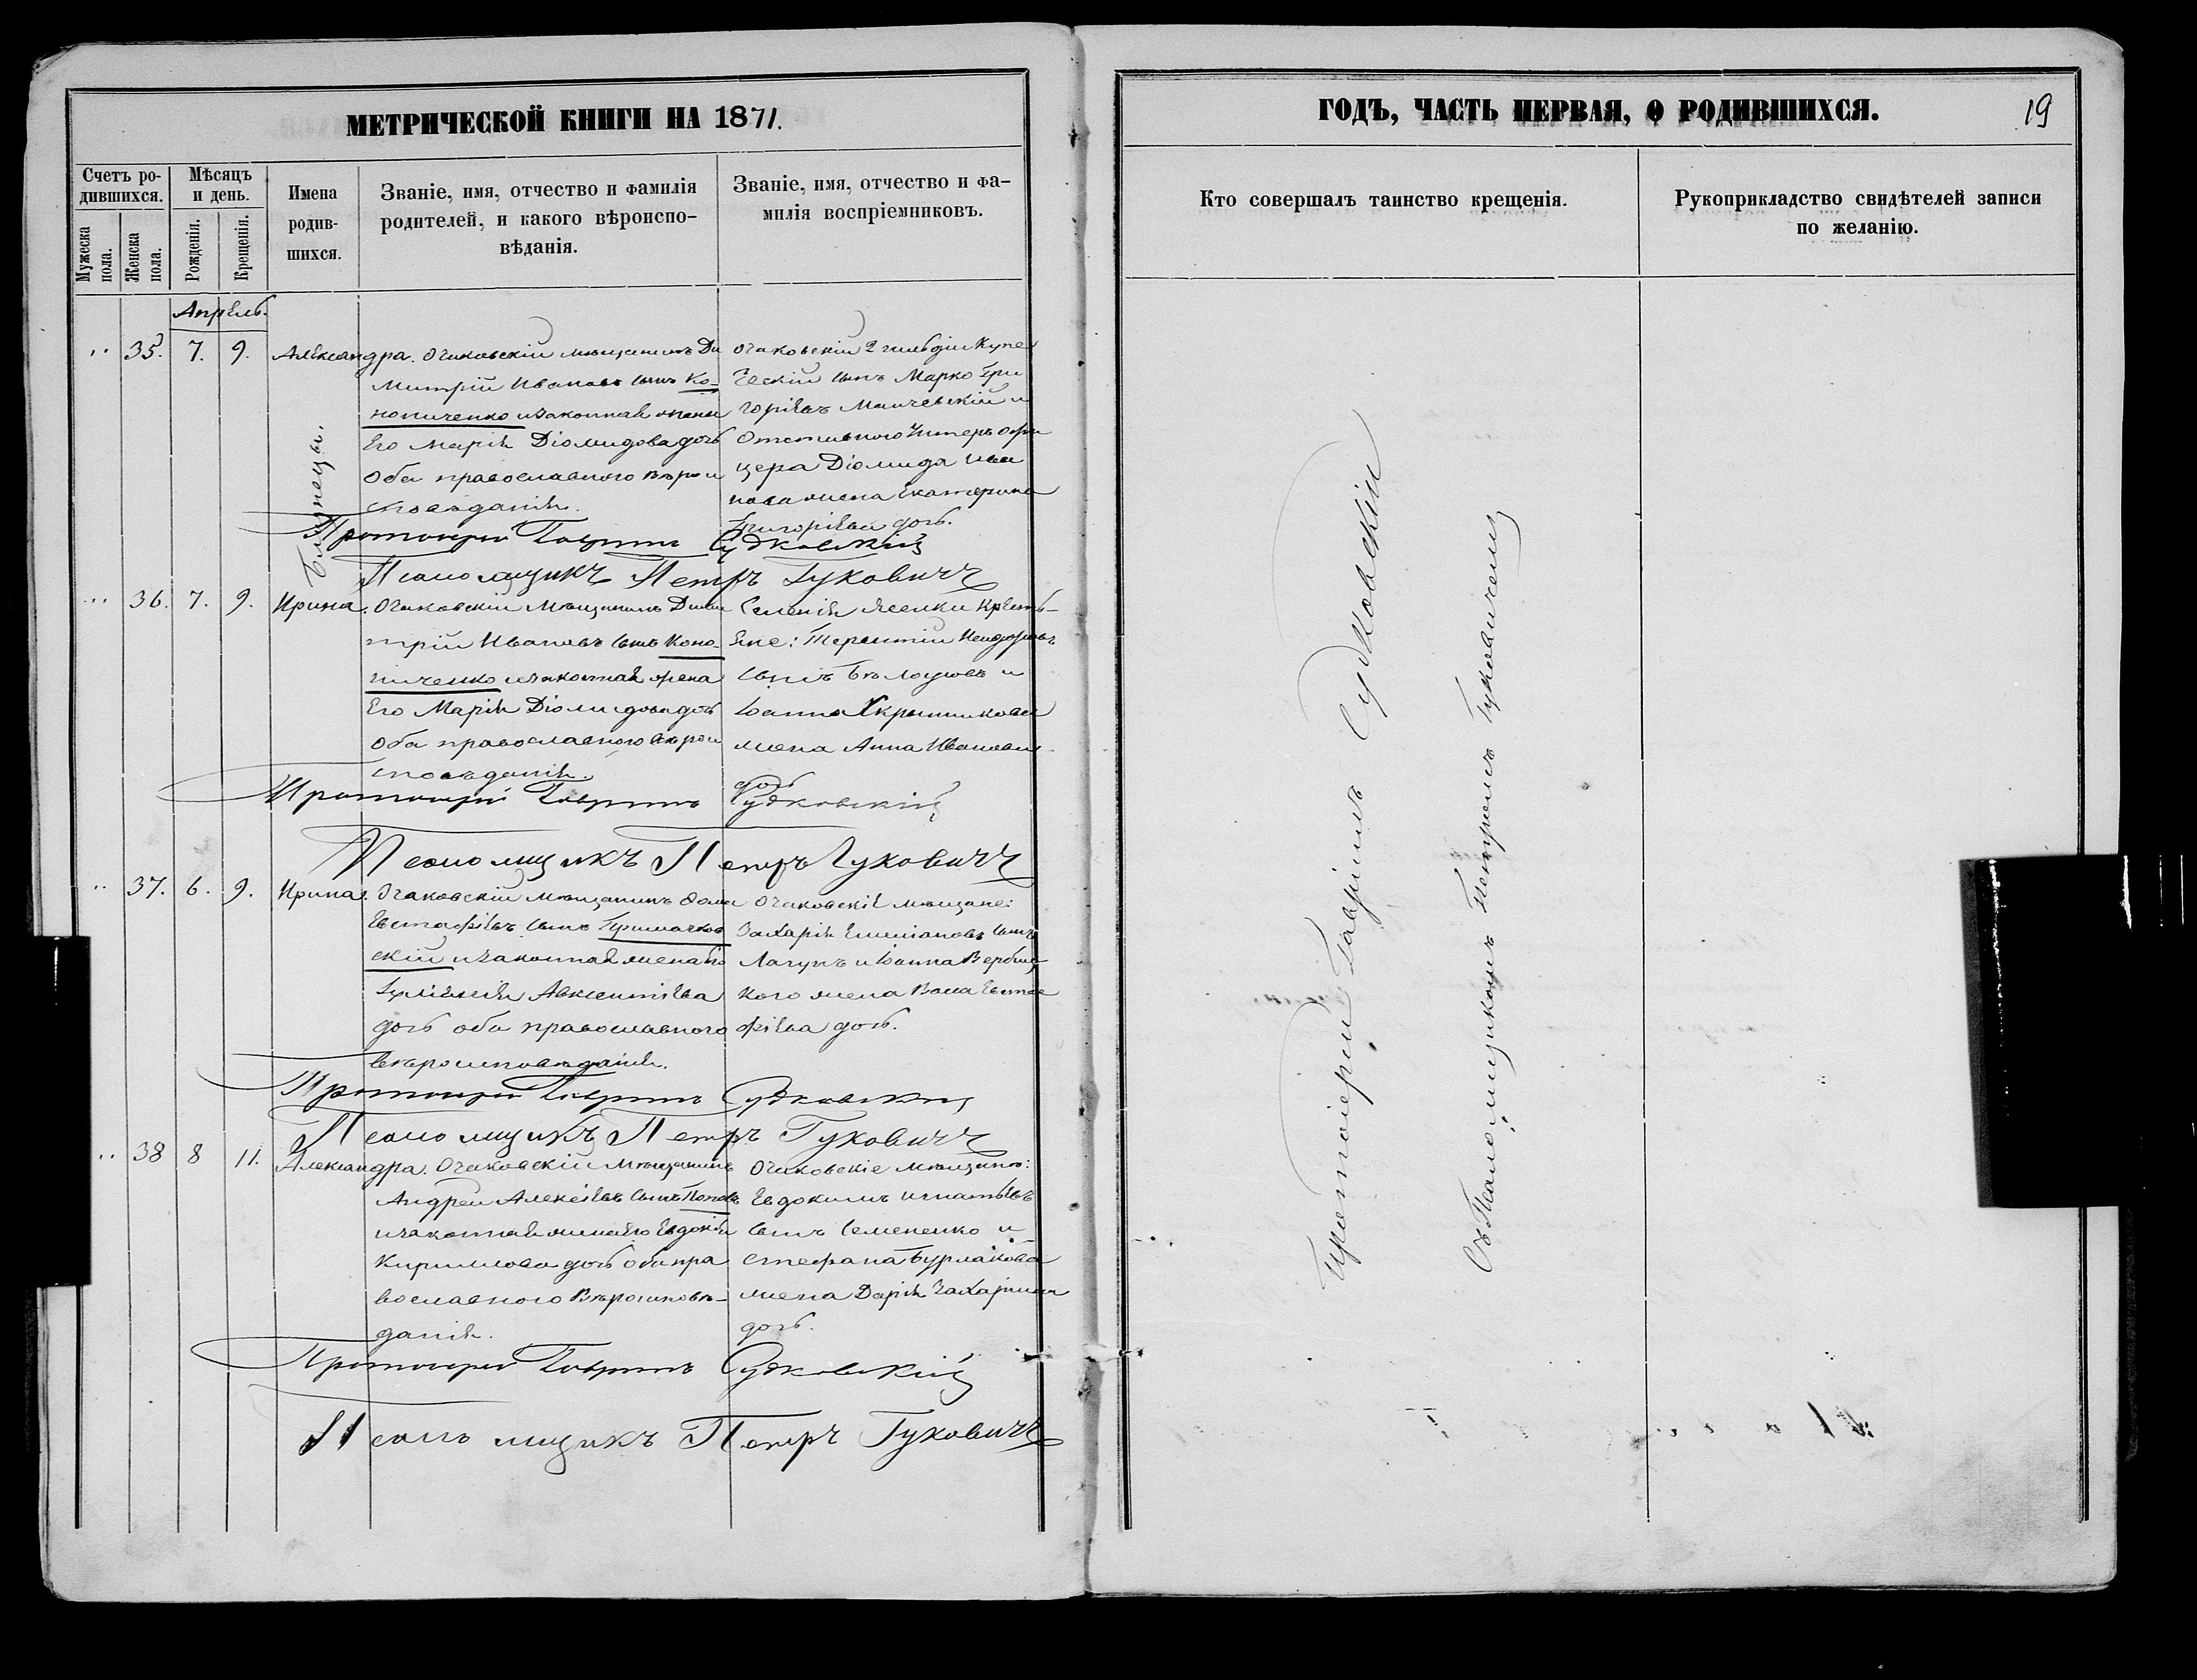 МЕТРИЧЕСКОЙ КНИГИ НА 1871.
Счетъ ро-
дившихся.
Мужеска
пола.
Женска
пола.
Мѣсяцъ
и день.
Рожденія.
Крещенія.
Имена
родив-
шихся.
Званіе, имя, отчество и фамилія
родителей, и какого вѣроиспо-
вѣданія.
Званіе, имя, отчество и фа-
милія воспріемниковъ.
Апрѣль.
35. 7. 9. Александра.
Близнецы.
Очаковскій мѣщанинъ Ди
митрій Ивановъ сынъ Ко-
нопиченко и законная жена
его Марія Діомидова дочь
оба православнаго вѣрои
споведанія.
Очаковскій 2 гильдіи Купе
ческій сынъ Марко Гри
горіевъ Манчевскій и
Отставного Унтеръ офи
цера Діомида Ива
нова жена Екатерина
Григоріева дочь.
Протоіерей Гавріилъ Судковскій
Псаломщикъ Петръ Гуковичъ
36. 7. 9. Ирина.
Очаковскій Мѣщанинъ Дими
трій Ивановъ сынъ Коно-
пиченко и законная жена
его Марія Діомидова дочь
оба православнаго вѣрои
споведанія.
Селенія Ясенки Кресть-
яне: Терентій
сынъ Бѣлоусовъ и
Іоанна
жена Анна Иванова
дочь
Протоіерей Гавріилъ Судковскій
Псаломщикъ Петръ Гуковичъ
37. 6. 9. Ирина.
Очаковскій мѣщанинъ Фома
Евстафіевъ сынъ
скій и законная жена его
Авксентіева
дочь оба православнаго
вѣроисповѣданія.
Очаковскіе мѣщане:
Захарія Емиліановъ сынъ
Лагунъ и Іоанна Вербиц
кого жена Васса Евста
фіева дочь.
Протоіерей Гавріилъ Судковскій
Псаломщикъ Петръ Гуковичъ
38 8 11. Александра.
Очаковскій Мѣщанинъ
Андрей Алексіевъ сынъ Поповъ
и законная жена его Евдокія
Кириллова дочь оба пра
вославного Вѣроисповѣ-
данія.
Очаковскіе мѣщане:
Евдокимъ Игнатьевъ
сынъ Семененко и
Стефана Бурлакова
жена Дарія Захаріина
дочь.
Протоіерей Гавріилъ Судковскій
Псаломщикъ Петръ Гуковичъ
ГОДЪ, ЧАСТЬ ПЕРВАЯ, О РОДИВШИХСЯ.
19
Кто совершалъ таинство крещенія.
Рукоприкладство свидѣтелей записи
по желанію.
Протоіерей Гавріилъ Судковскій
Съ Псаломщикомъ Петромъ Гуковичемъ